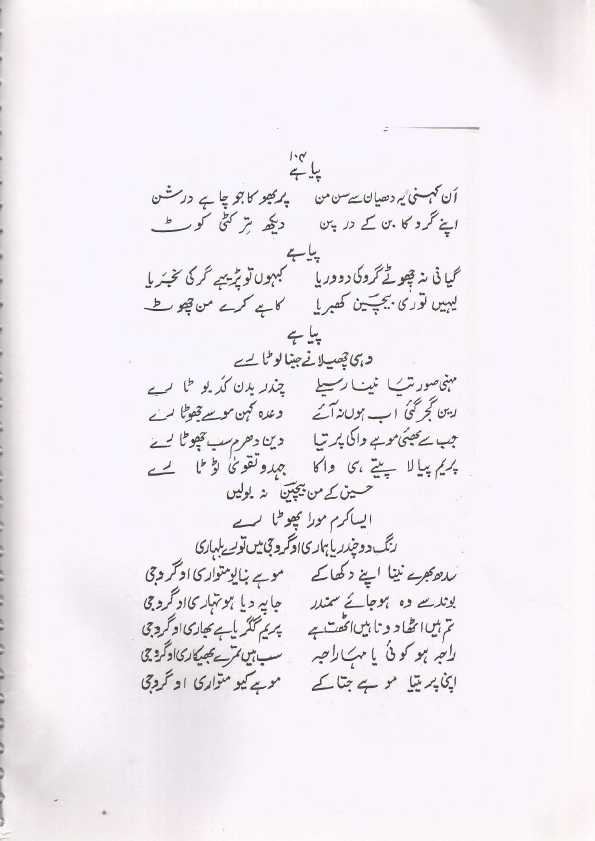 ۱۰۴
پیا ہے
اَن کہنی یہ دھیان سے سن من پربھو کا جو چاہے درشن
اپنے گرو کا بن کے درپن دیکھ تِر کٹی کوٹ
پیا ہے
گیانی نہ چھوٹے گرو کی دوریا کبہوں تو پڑیہے گر کی نجریا
لیہیں توری بیچین کھبریا کاہے کرے من چھوٹ
پیا ہے
وہی چھیلا نے جینا لوٹا رے
مہنی صورتیا نینا رسیلے چندر بدن کد بوٹا رے
رین گجر گئی اب ہوں نہ آئے وعدہ کہن موسے جھوٹا رے
جب سے بھئی موہے واکی پرتیا دین دھرم سب چھوٹا رے
پریم پیالا پیتے ہی واکا جہد و تقویٰ لوٹا رے
حسین کے من بیچین نہ بولیں
ایسا کرم مورا پھوٹا رے
رنگ دو چندریا ہماری او گرو جی میں تورے بلہاری
سدھ بھرے نینا اپنے دکھا کے موہے بنایو متواری او گرو جی
بوند سے وہ ہو جائے سمندر جاپہ دیا ہو تہاری او گرو جی
تم ہیں اٹھا دو نا ہیں اٹھت ہے پریم گگریا ہے بھاری او گرو جی
راجہ ہو کوئی یا مہاراجہ سب ہیں تمرے بھیکاری او گرو جی
اپنی پریتیا موہے جتا کے موہے کیو متواری او گرو جی